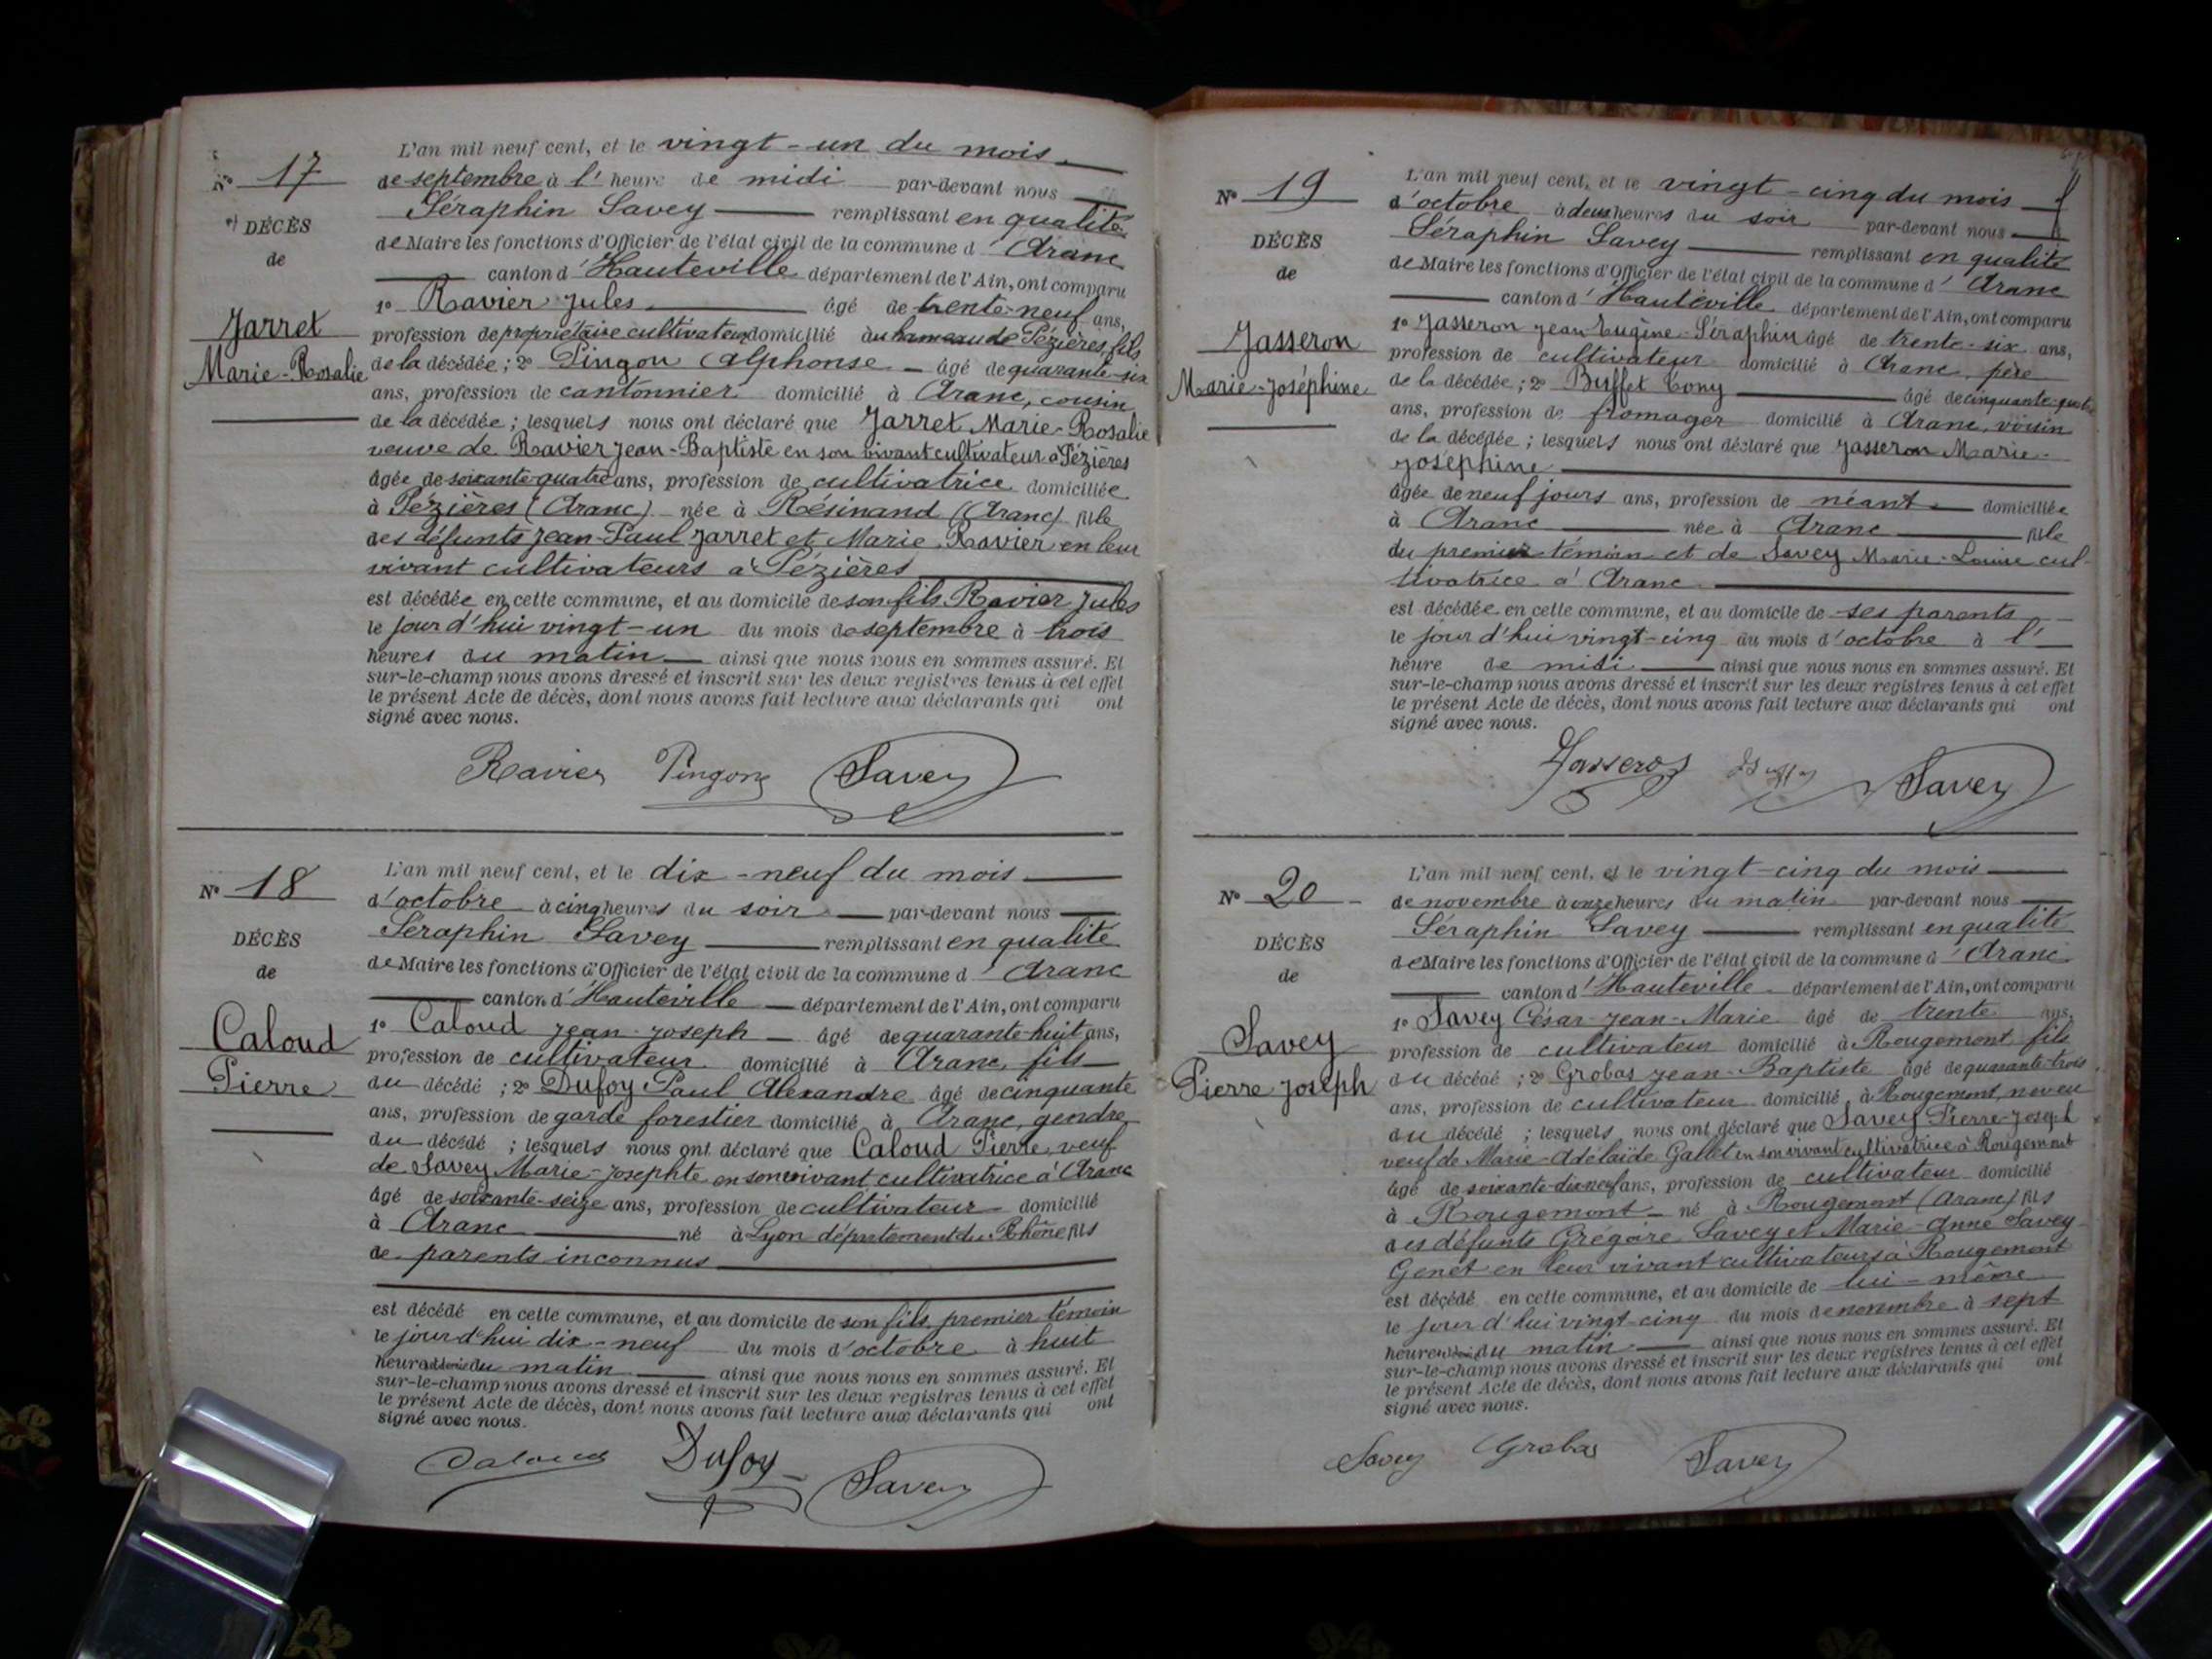 L'an mil neuf cent, et le vingt-un du mois
N° 17
de septembre à l'heure de midi par-devant nous
Séraphin Savey remplissant en qualité
DÉCÈS
de Maire les fonctions d'Officier de l'état civil de la commune d'Aranc
de
canton d'Hauteville département de l'Ain, ont comparu
1° Ravier Jules âgé de trente-neuf ans,
Jarret
profession de propriétaire cultivateur domicilié au hameau de Pézières, fils
Marie-Rosalie
de la décédée ; 2° Pingon Alphonse âgé de quarante-six
ans, profession de cantonnier domicilié à Aranc, cousin
de la décédée ; lesquels nous ont déclaré que Jarret Marie-Rosalie
veuve de Ravier Jean-Baptiste en son vivant cultivateur à Pézières
âgée de soixante-quatre ans, profession de cultivatrice domiciliée
à Pézières (Aranc) née à Résinand (Aranc) fille
des défunts Jean-Paul Jarret et Marie Ravier en leur
vivant cultivateurs à Pézières
est décédée en cette commune, et au domicile de son fils Ravier Jules
le jour d'hui vingt-un du mois de septembre à trois
heures du matin ainsi que nous nous en sommes assuré. Et
sur-le-champ nous avons dressé et inscrit sur les deux registres tenus à cet effet
le présent Acte de décès, dont nous avons fait lecture aux déclarants qui ont
signé avec nous.
Ravier Pingon Savey
L'an mil neuf cent, et le dix-neuf du mois
N° 18
d'octobre à cinq heures du soir par-devant nous
Séraphin Savey remplissant en qualité
DÉCÈS
de Maire les fonctions d'Officier de l'état civil de la commune d'Aranc
de
canton d'Hauteville département de l'Ain, ont comparu
1° Caloud Jean-Joseph âgé de quarante-huit ans,
Caloud
profession de cultivateur domicilié à Aranc, fils
Pierre
du décédé ; 2° Dufoy Paul Alexandre âgé de cinquante
ans, profession de garde forestier domicilié à Aranc, gendre
du décédé ; lesquels nous ont déclaré que Caloud Pierre, veuf
de Savey Marie-Josephte en son vivant cultivatrice à Aranc
âgé de soixante-seize ans, profession de cultivateur domicilié
à Aranc né à Lyon département du Rhône fils
de parents inconnus
est décédé en cette commune, et au domicile de son fils, premier témoin
le jour d'hui dix-neuf du mois d'octobre à huit
heures du matin ainsi que nous nous en sommes assuré. Et
sur-le-champ nous avons dressé et inscrit sur les deux registres tenus à cet effet
le présent Acte de décès, dont nous avons fait lecture aux déclarants qui ont
signé avec nous.
Caloud Dufoy Savey
L'an mil neuf cent, et le vingt-cinq du mois
N° 19
d'octobre à deux heures du soir par-devant nous
Séraphin Savey remplissant en qualité
DÉCÈS
de Maire les fonctions d'Officier de l'état civil de la commune d'Aranc
de
canton d'Hauteville département de l'Ain, ont comparu
1° Jasseron Jean Eugène-Séraphin âgé de trente-six ans,
Jasseron
profession de cultivateur domicilié à Aranc, père
Marie-Joséphine
de la décédée ; 2° Buffet Tony âgé de cinquante-quatre
ans, profession de fromager domicilié à Aranc, voisin
de la décédée ; lesquels nous ont déclaré que Jasseron Marie-
Joséphine
âgée de neuf jours ans, profession de néant domiciliée
à Aranc née à Aranc fille
du premier témoin et de Savey Marie-Louise cul-
tivatrice à Aranc
est décédée en cette commune, et au domicile de ses parents
le jour d'hui vingt-cinq du mois d'octobre à l'
heure de midi ainsi que nous nous en sommes assuré. Et
sur-le-champ nous avons dressé et inscrit sur les deux registres tenus à cet effet
le présent Acte de décès, dont nous avons fait lecture aux déclarants qui ont
signé avec nous.
Jasseron Savey
L'an mil neuf cent, et le vingt-cinq du mois
N° 20
de novembre à onze heures du matin par-devant nous
Séraphin Savey remplissant en qualité
DÉCÈS
de Maire les fonctions d'Officier de l'état civil de la commune d'Aranc
de
canton d'Hauteville département de l'Ain, ont comparu
1° Savey César-Jean-Marie âgé de trente ans,
Savey
profession de cultivateur domicilié à Rougemont, fils
Pierre Joseph
du décédé ; 2° Grobas Jean-Baptiste âgé de quarante-trois
ans, profession de cultivateur domicilié à Rougemont, neveu
du décédé ; lesquels nous ont déclaré que Savey Pierre-Joseph
veuf de Marie-Adélaïde Gallet en son vivant cultivatrice à Rougemont
âgé de soixante-dix-neuf ans, profession de cultivateur domicilié
à Rougemont né à Rougemont (Aranc) fils
des défunts Grégoire Savey et Marie-Anne Savey
Genet en leur vivant cultivateurs à Rougemont
est décédé en cette commune, et au domicile de lui-même
le jour d'hui vingt-cinq du mois de novembre à sept
heures du matin ainsi que nous nous en sommes assuré. Et
sur-le-champ nous avons dressé et inscrit sur les deux registres tenus à cet effet
le présent Acte de décès, dont nous avons fait lecture aux déclarants qui ont
signé avec nous.
Savey Grobas Savey